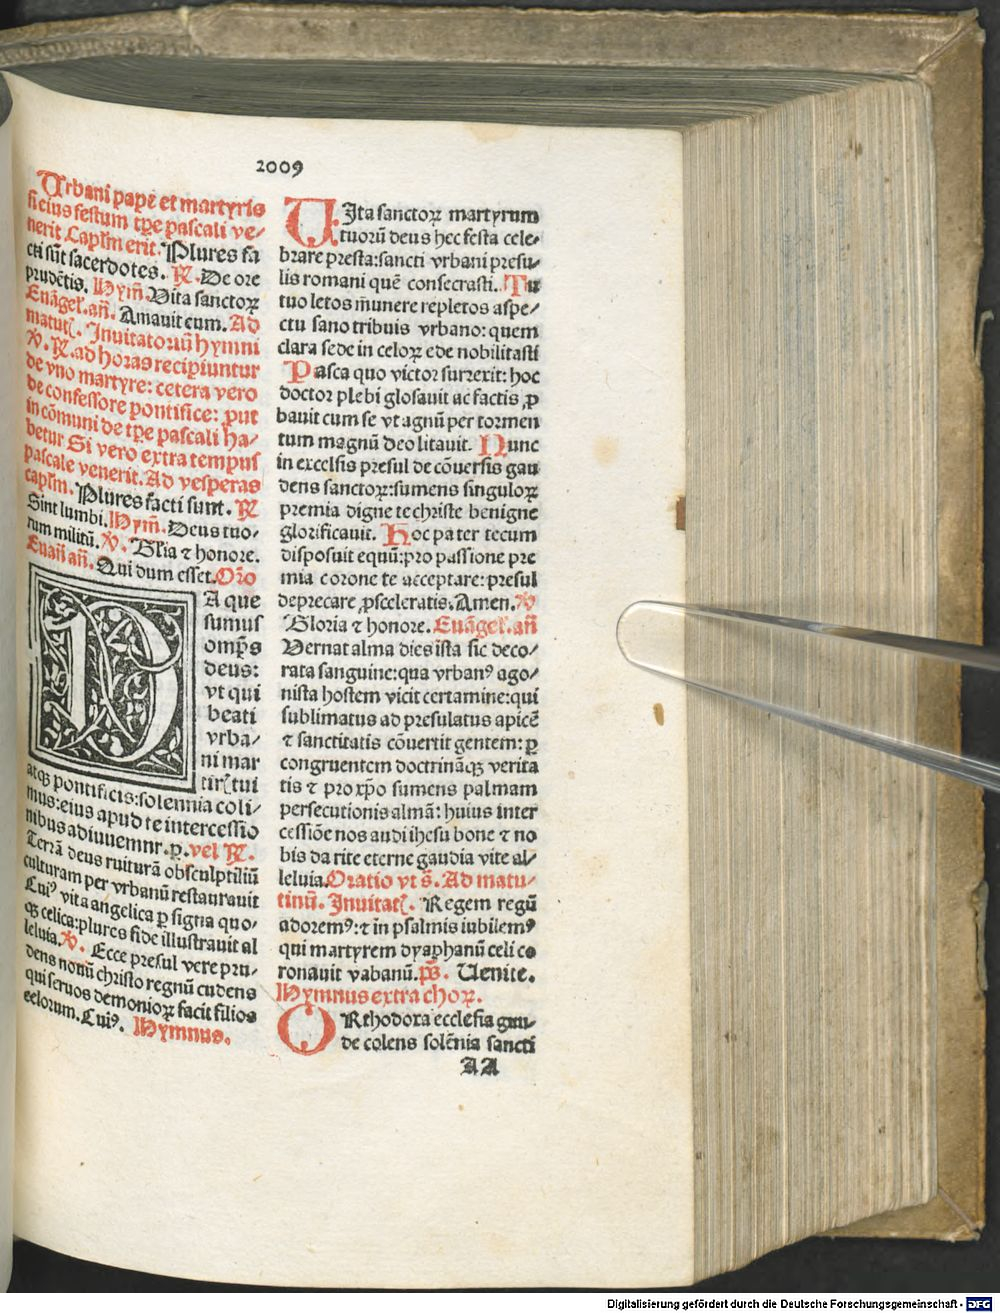 2009
Urbani pape et martyris
si eius festum tp̄e pascali ve⸗
nerit Caplm̄ erit. Plures fa
cti sūt sacerdotes. ℟. De ore
prudētis. Hym̄. Vita sanctoꝝ
Euāgeł. añ. Amauit eum. Ad
matut̄. Inuitatoriū hymni
℣. ℟. ad horas recipiuntur
de vno martyre: cetera vero
de confessore pontifice: put
in cōmuni de tp̄e pascali ha⸗
betur Si vero extra tempus
pascale venerit. Ad vesperas
caplm̄. Plures facti sunt. ℟
Sint lumbi. Hym̄. Deus tuo⸗
rum militū. ℣. Glia ⁊ honore.
Euañ añ. Qui dum esset. Orō
DA que
sumus
omp̄s
deus:
vt qui
beati
vrba⸗
ni mar
tir̄ tui
atqꝫ pontificis: solennia coli⸗
mus: eius apud te intercessio
nibus adiuuemur. ꝑ. vel ℟.
Terrā deus ruiturā obsculptiliū
culturam per vrbanū restaurauit
Cuiꝰ vita angelica ꝑ signa quo⸗
qꝫ celica: plures fide illustrauit al
leluia. ℣. Ecce presul vere pru⸗
dens nouū christo regnū cudens
qui seruos demonioꝝ facit filios
celorum. Cuiꝰ. Hymnus.
VIta sanctoꝝ martyrum
tuorū deus hec festa cele⸗
brare presta: sancti vrbani presu⸗
lis romani quē consecrasti. Tu
tuo letos munere repletos aspe⸗
ctu sano tribuis vrbano: quem
clara sede in celoꝝ ede nobilitasti
Pasca quo victor surrexit: hoc
doctor plebi glosauit ac factis ꝓ
bauit cum se vt agnū per tormen
tum magnū deo litauit. Nunc
in excelsis presul de cōuersis gau
dens sanctoꝝ: sumens singuloꝝ
premia digne te christe benigne
glorificauit. Hoc pater tecum
disposuit equū: pro passione pre
mia corone te acceptare: presul
deprecare ꝓ sceleratis. Amen. ℣
Gloria ⁊ honore. Euāgeł. añ
Vernat alma dies ista sic deco⸗
rata sanguine: qua vrbanꝰ ago⸗
nista hostem vicit certamine: qui
sublimatus ad presulatus apicē
⁊ sanctitatis cōuertit gentem: ꝑ
congruentem doctrināqꝫ verita
tis ⁊ pro xp̄o sumens palmam
persecutionis almā: huius inter
cessiōe nos audi ihesu bone ⁊ no
bis da rite eterne gaudia vite al⸗
leluia. Oratio vt s̄. Ad matu⸗
tinū. Inuitat̄. Regem regū
adoremꝰ: ⁊ in psalmis iubilemꝰ
qui martyrem dyaphanū celi co
ronauit vabanū. ps̄. Uenite.
Hymnus extra choꝝ.
ORthodoxa ecclesia gau⸗
de colens solēnia sancti
AA
Digitalisierung gefördert durch die Deutsche Forschungsgemeinschaft - DFG